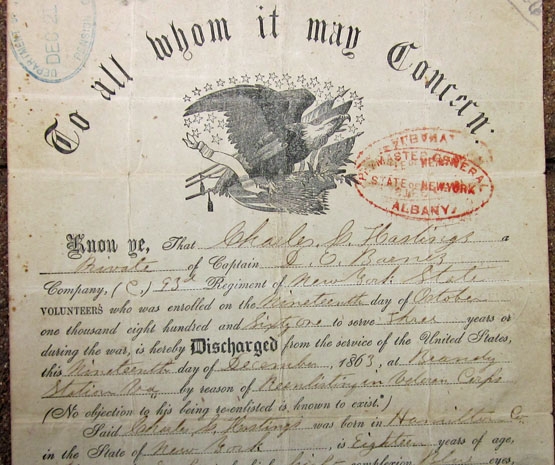 To all whom it may Concern:
DEC 21
PAYMASTER GENERAL
STATE OF NEW-YORK
ALBANY
Know ye, That Charles J. Hastings a
Private of Captain D. O. Barnes
Company, (C,) 93rd Regiment of New York State
VOLUNTEERS who was enrolled on the Nineteenth day of October
one thousand eight hundred and Sixty One to serve Three years or
during the war, is hereby Discharged from the service of the United States,
this Nineteenth day of December, 1863, at Brandy
Station Va by reason of Reenlisting in Veteran Corps
(No objection to his being re-enlisted is known to exist.*)
Said Charles J. Hastings was born in Hamilton Co
in the State of New York, is Eighteen years of age,
complexion Blue eyes,